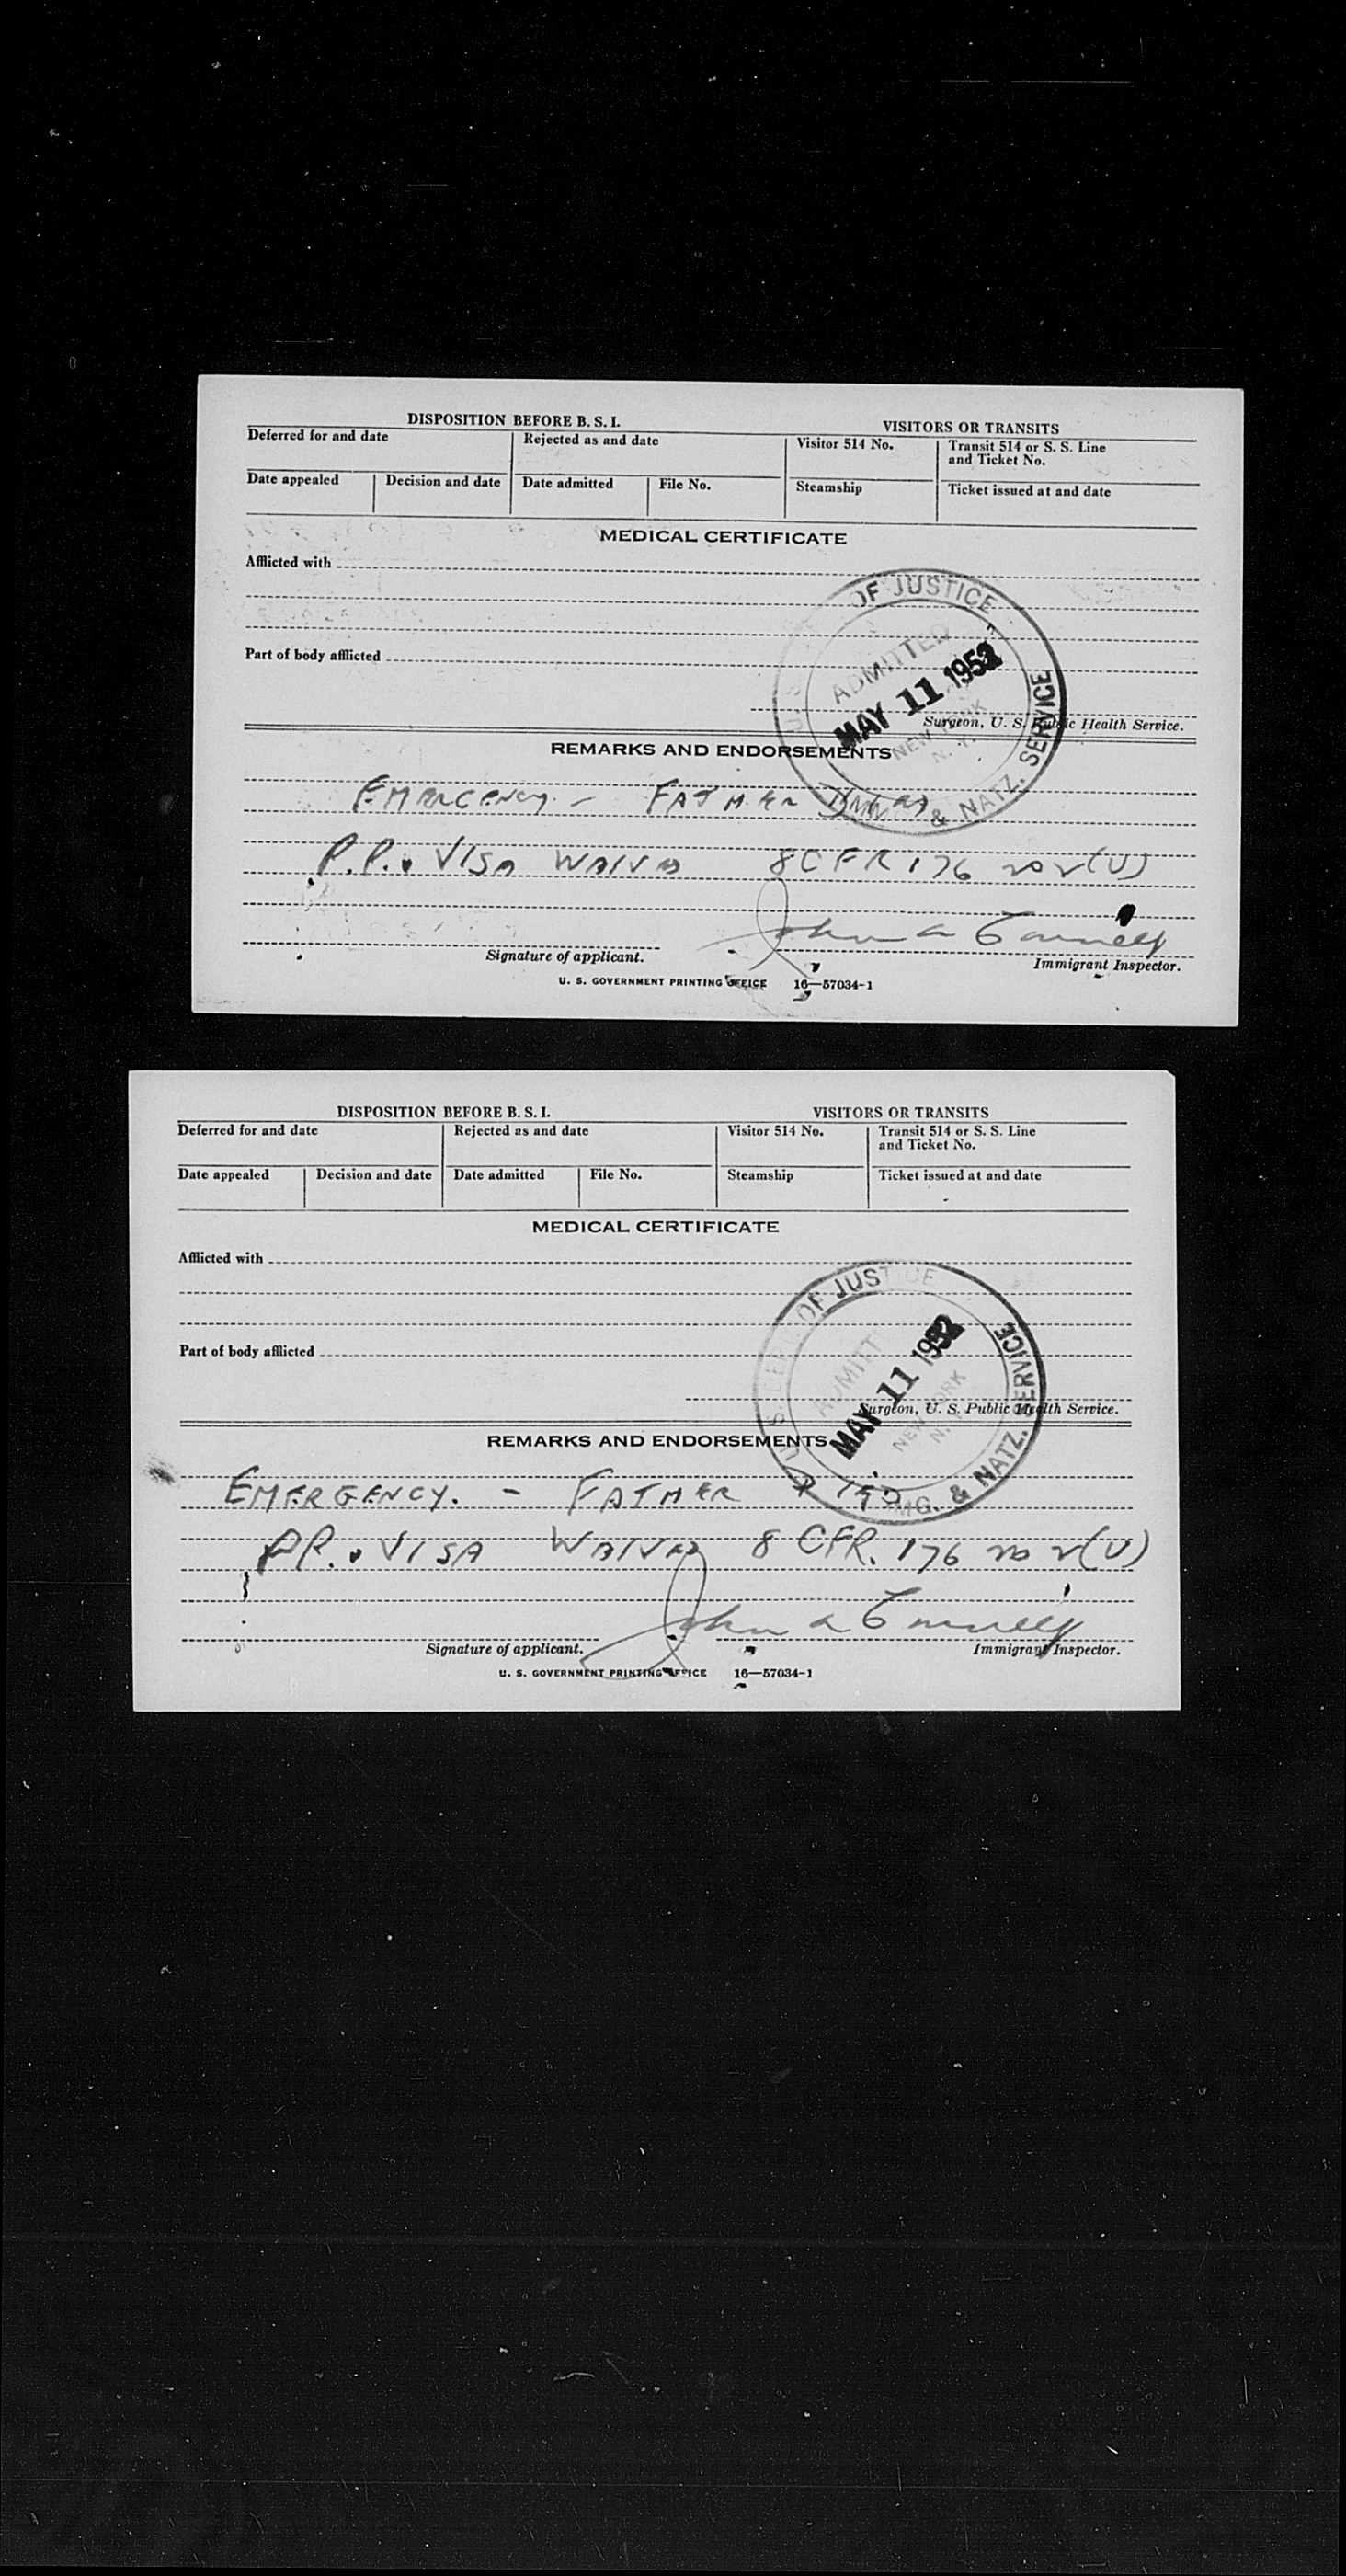 DISPOSITION BEFORE B. S. I.
VISITORS OR TRANSITS
Deferred for and date
Rejected as and date
Visitor 514 No.
Transit 514 or S. S. Line
and Ticket No.
Date appealed
Decision and date
Date admitted
File No.
Steamship
Ticket issued at and date
MEDICAL CERTIFICATE
Afflicted with
Part of body afflicted
OF JUSTICE
ADMITTED
MAY 11 1952
NEW YORK
N. Y.
IMM. & NATZ. SERVICE
Surgeon, U. S. Public Health Service.
REMARKS AND ENDORSEMENTS
EMERGENCY - FATHER
P.P. VISA WAIVED 8 CFR 176 (U)
John A
Signature of applicant.
Immigrant Inspector.
U. S. GOVERNMENT PRINTING OFFICE 16—57034-1
DISPOSITION BEFORE B. S. I.
VISITORS OR TRANSITS
Deferred for and date
Rejected as and date
Visitor 514 No.
Transit 514 or S. S. Line
and Ticket No.
Date appealed
Decision and date
Date admitted
File No.
Steamship
Ticket issued at and date
MEDICAL CERTIFICATE
Afflicted with
Part of body afflicted
OF JUSTICE
ADMITT
MAY 11 1952
NEW YORK
N.
IMG. & NATZ. SERVICE
Surgeon, U. S. Public Health Service.
REMARKS AND ENDORSEMENTS
EMERGENCY. - FATHER
PP. VISA WAIVED 8 CFR. 176 (U)
John A
Signature of applicant.
Immigrant Inspector.
U. S. GOVERNMENT PRINTING OFFICE 16—57034-1